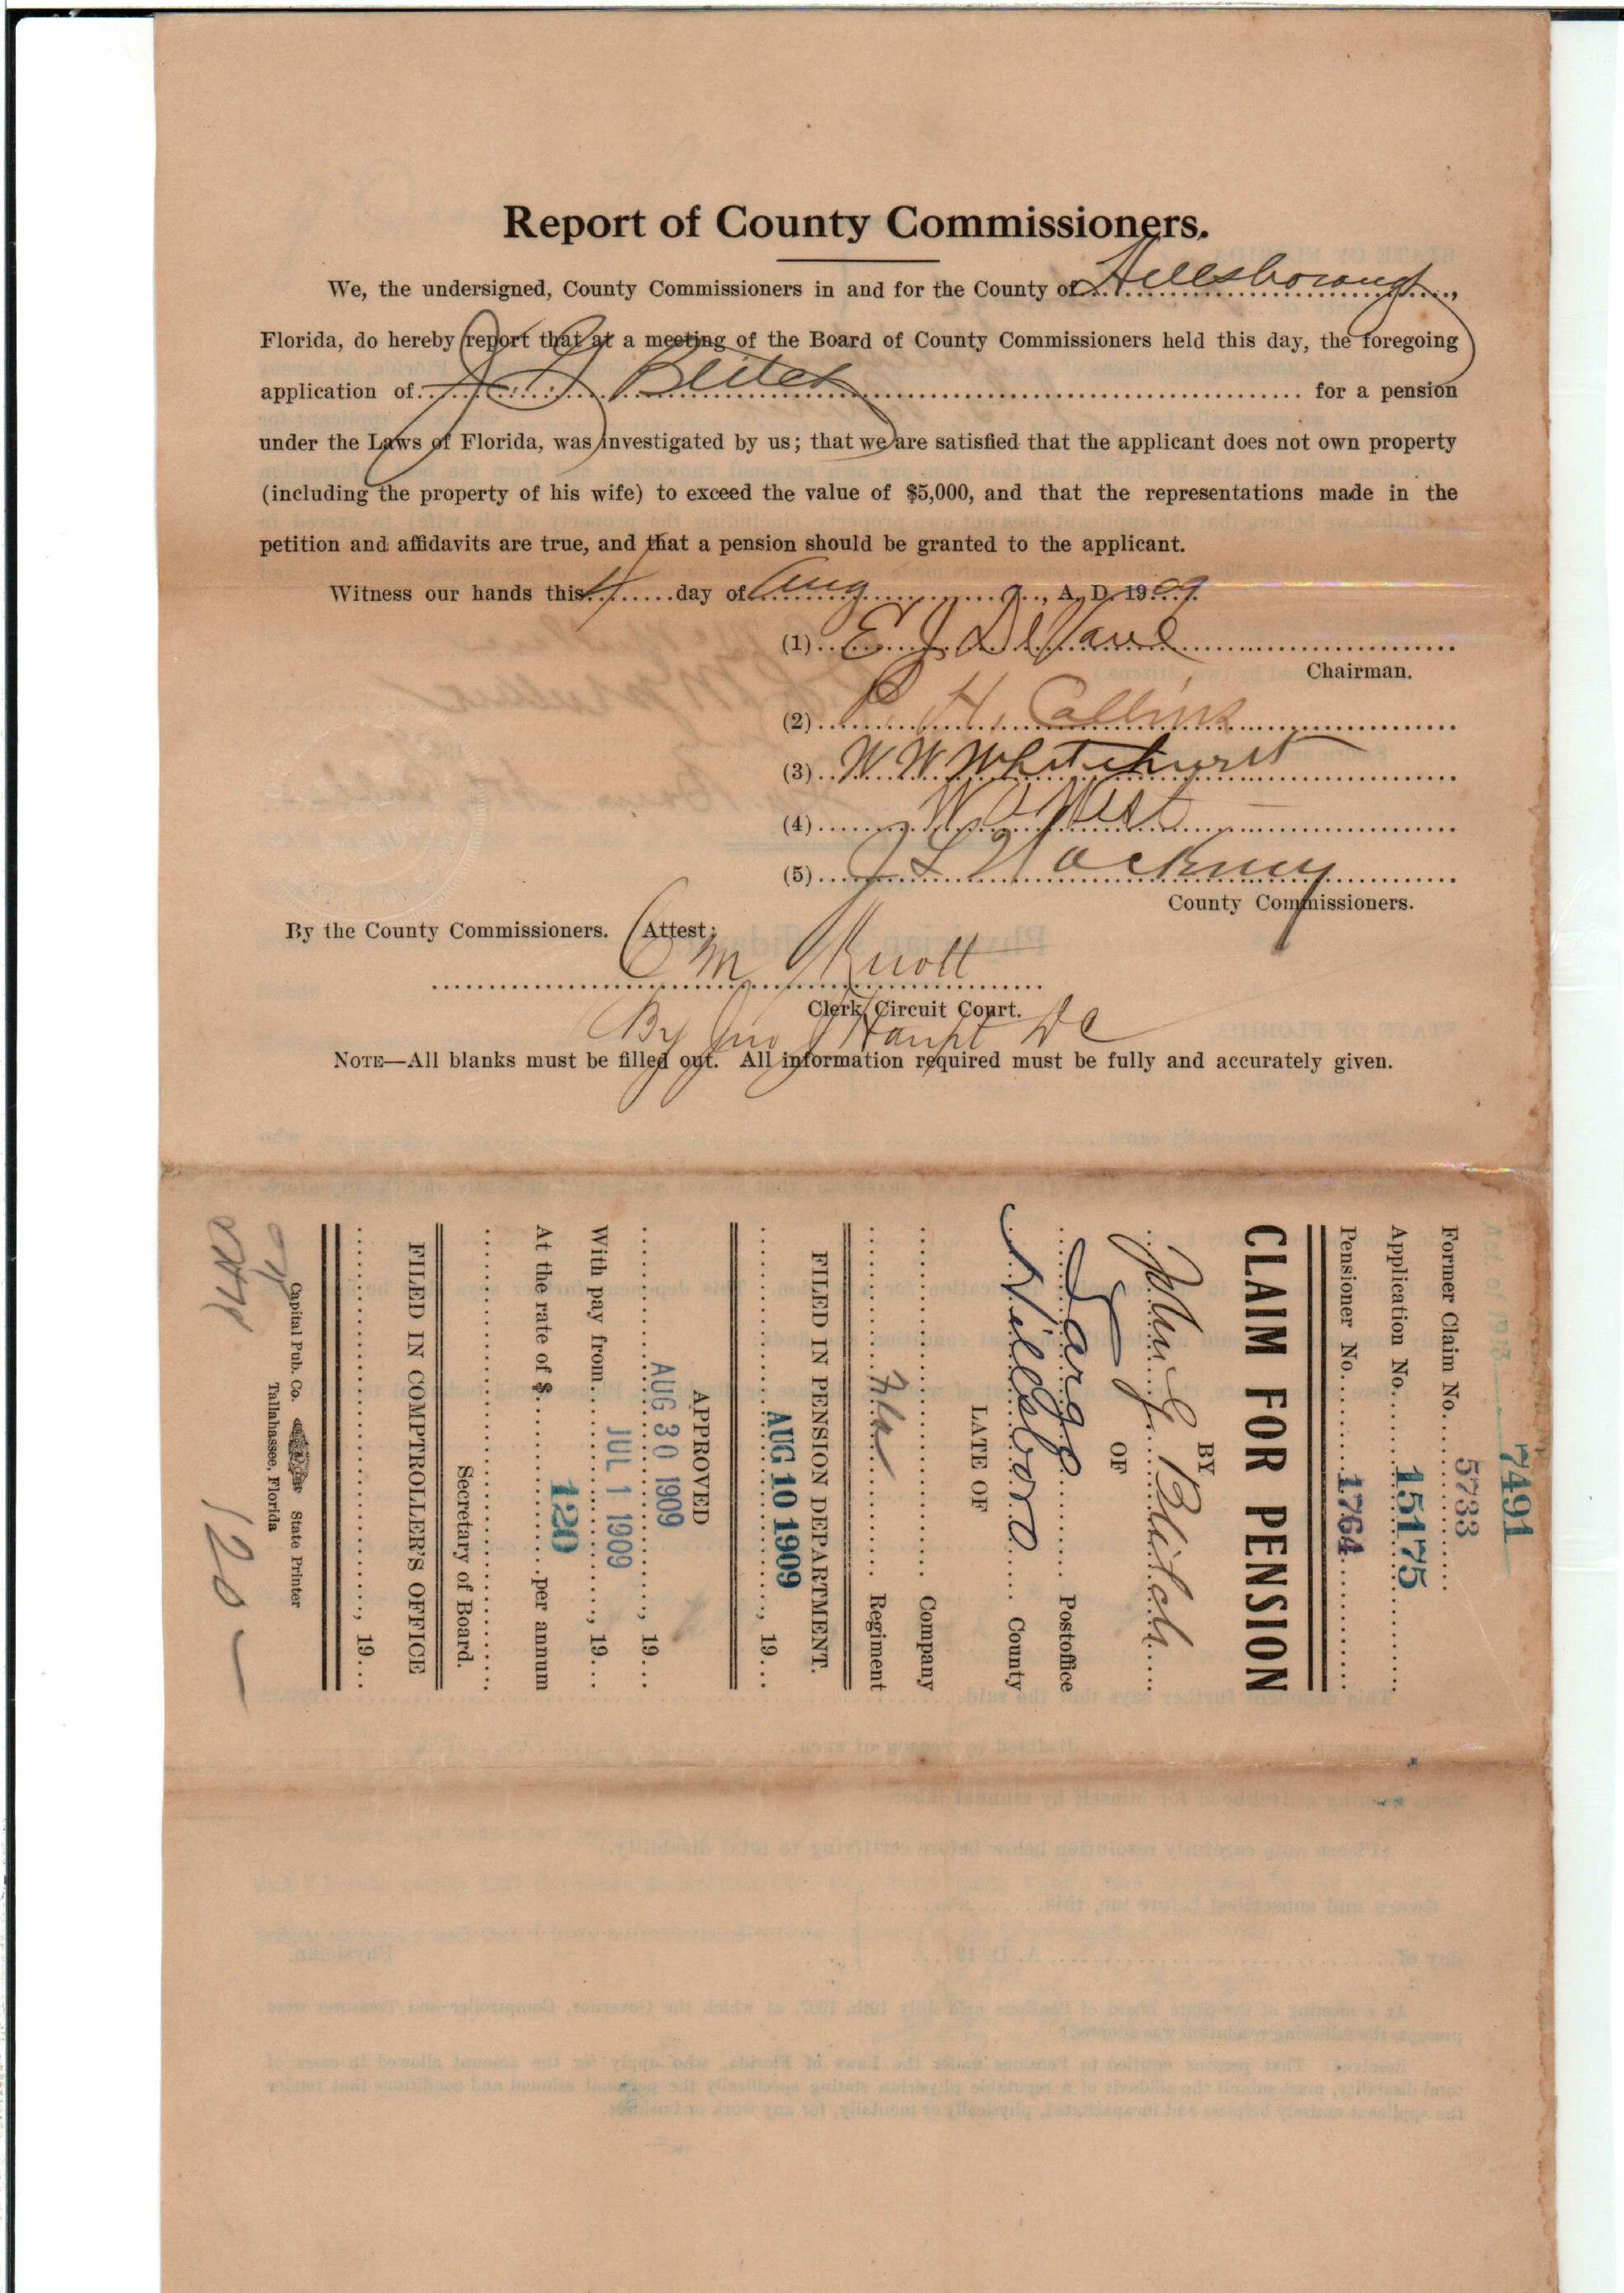 Report of County Commissioners.
We, the undersigned, County Commissioners in and for the County of Hillsborough,
Florida, do hereby report that at a meeting of the Board of County Commissioners held this day, the foregoing
application of J G Blitch for a pension
under the Laws of Florida, was investigated by us; that we are satisfied that the applicant does not own property
(including the property of his wife) to exceed the value of $5,000, and that the representations made in the
petition and affidavits are true, and that a pension should be granted to the applicant.
Witness our hands this 4 day of Aug, A. D. 1909.
(1) E J DeVane
Chairman.
(2) H. Collins
(3) W W Whitehurst
(4) West
(5) J L Hackney
County Commissioners.
By the County Commissioners. Attest:
C M Knott
Clerk Circuit Court.
By Jno Haupt DC
NOTE—All blanks must be filled out. All information required must be fully and accurately given.
7491
Former Claim No. 5733
Application No. 15175
Pensioner No. 1764
CLAIM FOR PENSION
BY
John G. Blitch
OF
Largo Postoffice
Hillsboro County
LATE OF
Company
Fla Regiment
FILED IN PENSION DEPARTMENT.
AUG 10 1909, 19
APPROVED
AUG 30 1909, 19
With pay from JUL 1 1909, 19
At the rate of $ 120 per annum
Secretary of Board.
FILED IN COMPTROLLER'S OFFICE
, 19
Capital Pub. Co. State Printer
Tallahassee, Florida
120